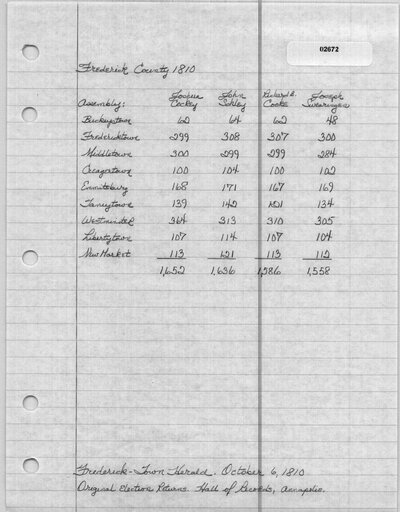 02672
Frederick County 1810
Assembly: Joshua Cockey John Schley Richard B. Cooke Joseph Swearingen
Buckeystown 62 64 62 48
Fredericktown 299 308 307 300
Middletown 300 299 299 284
Creagerstown 100 104 100 102
Emmitsburg 168 171 167 169
Taneytown 139 142 121 134
Westminster 364 313 310 305
Libertytown 107 114 107 104
New Market 113 121 113 112
1,652 1,636 1,586 1,558
Frederick-Town Herald. October 6, 1810
Original Election Returns. Hall of Records, Annapolis.